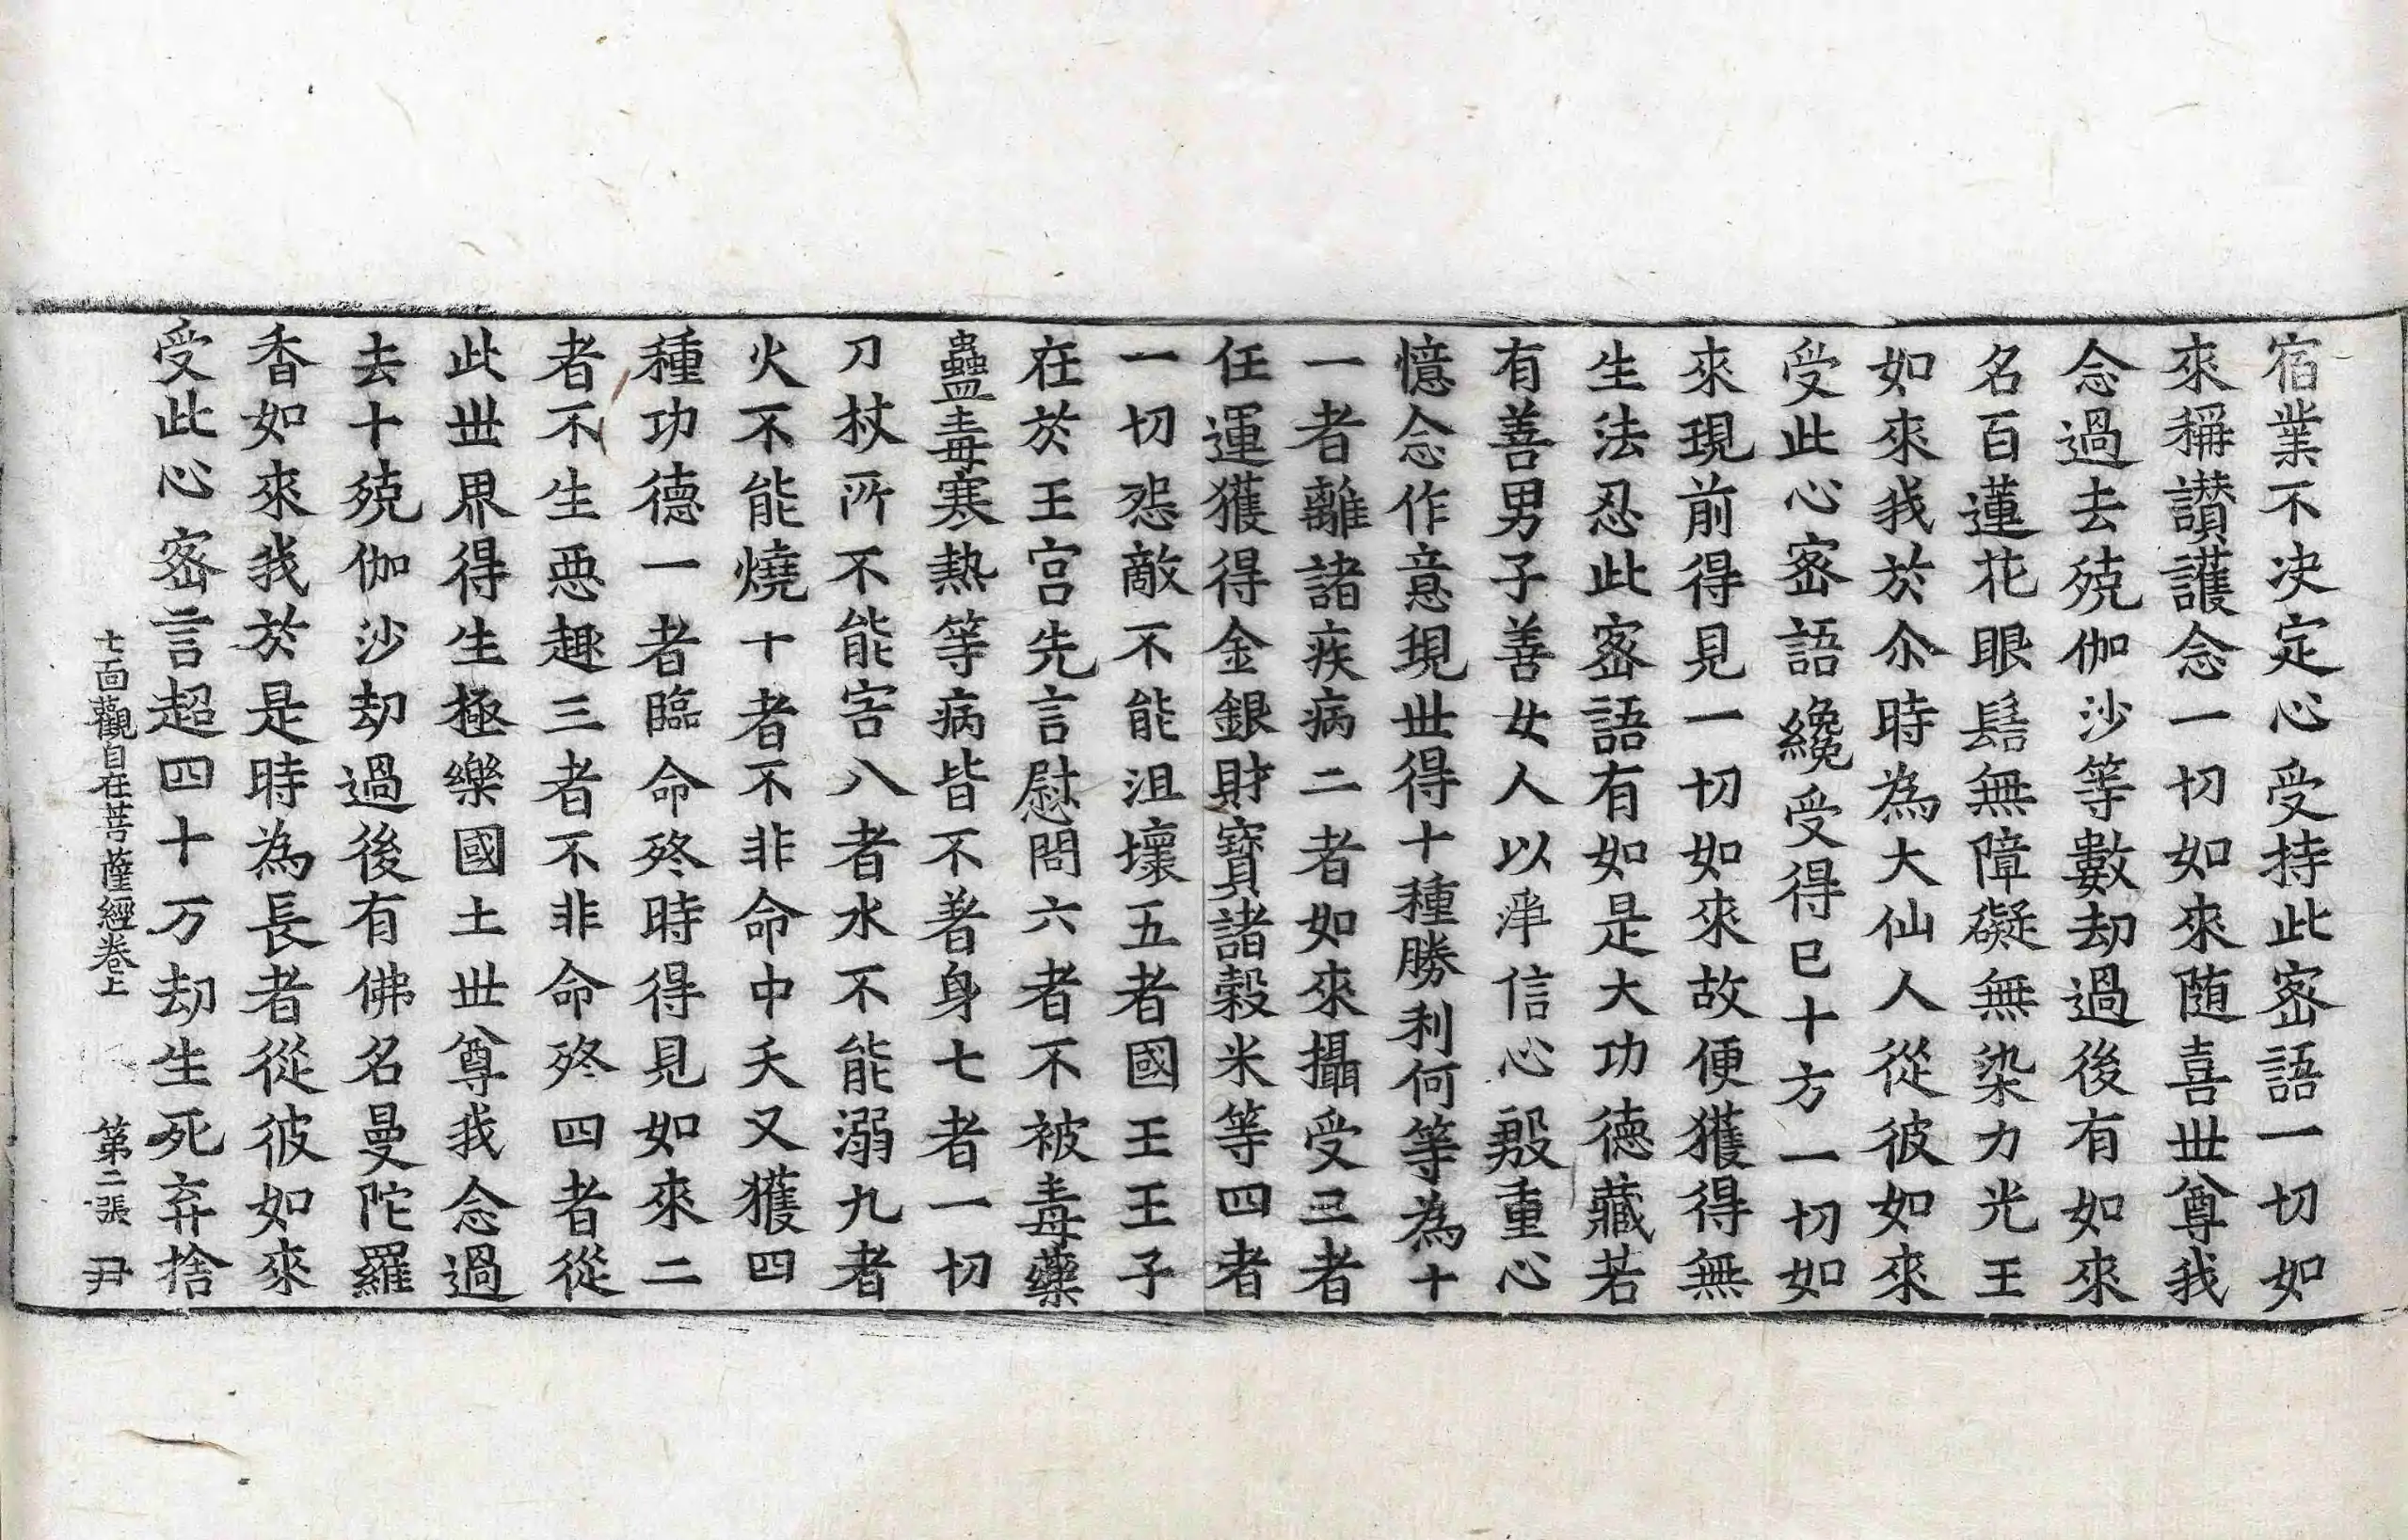 宿業不決定心受持此密語一切如
來稱讃護念一切如來随喜世尊我
念過去殑伽沙等數劫過後有如來
名百蓮花眼髻無障礙無染力光王
如來我於尒時為大仙人從彼如來
受此心密語纔受得已十方一切如
來現前得見一切如來故便獲得無
生法忍此密語有如是大功德藏若
有善男子善女人以淨信心殷重心
憶念作意現世得十種勝利何等為十
一者離諸疾病二者如來攝受三者
任運獲得金銀財寶諸穀米等四者
一切怨敵不能沮壞五者國王王子
在於王宮先言慰問六者不被毒藥
蠱毒寒熱等病皆不著身七者一切
刀杖所不能害八者水不能溺九者
火不能燒十者不非命中夭又獲四
種功德一者臨命終時得見如來二
者不生惡趣三者不非命終四者從
此世界得生極樂國土世尊我念過
去十殑伽沙劫過後有佛名曼陀羅
香如來我於是時為長者從彼如來
受此心密言超四十万劫生死弃捨
十面觀自在菩薩經卷上 第二張 尹